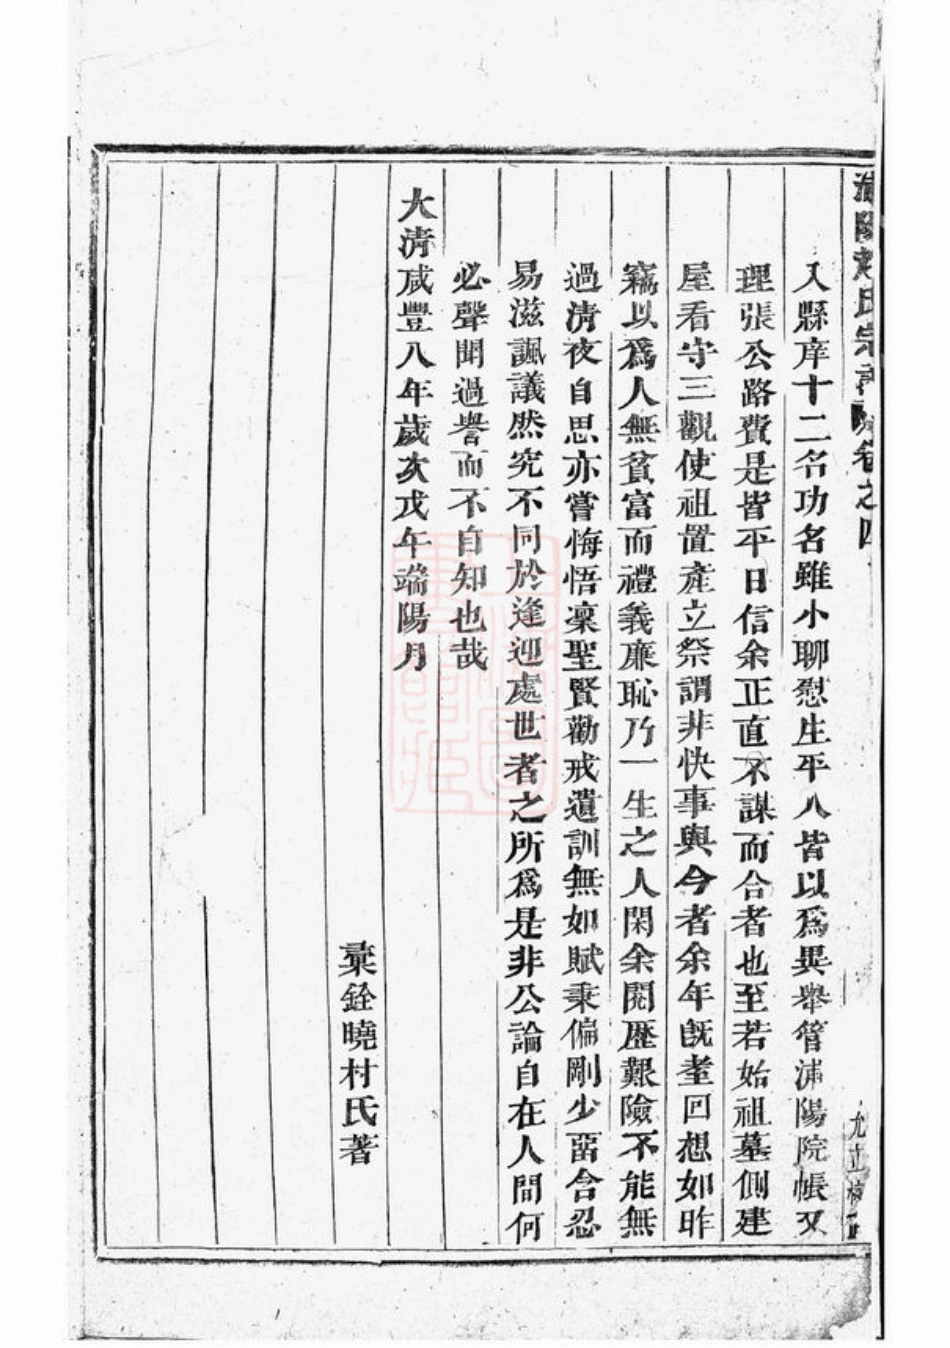 氏宗譜 卷之四
入縣庠十二名功名雖小聊慰生平人皆以爲異舉管浦陽院帳又
理張公路費是皆平日信余正直不謀而合者也至若始祖墓側建
屋看守三觀使祖置產立祭謂非快事與今者余年旣耋回想如昨
竊以爲人無貧富而禮義廉恥乃一生之人閑余閱歷艱險不能無
過清夜自思亦嘗悔悟稟聖賢勸戒遺訓無如賦秉偏剛少畱含忍
易滋諷議然究不同於逢迎處世者之所爲是非公論自在人間何
必聲聞過譽而不自知也哉
大清咸豐八年歲次戊午端陽月
彙銓曉村氏著